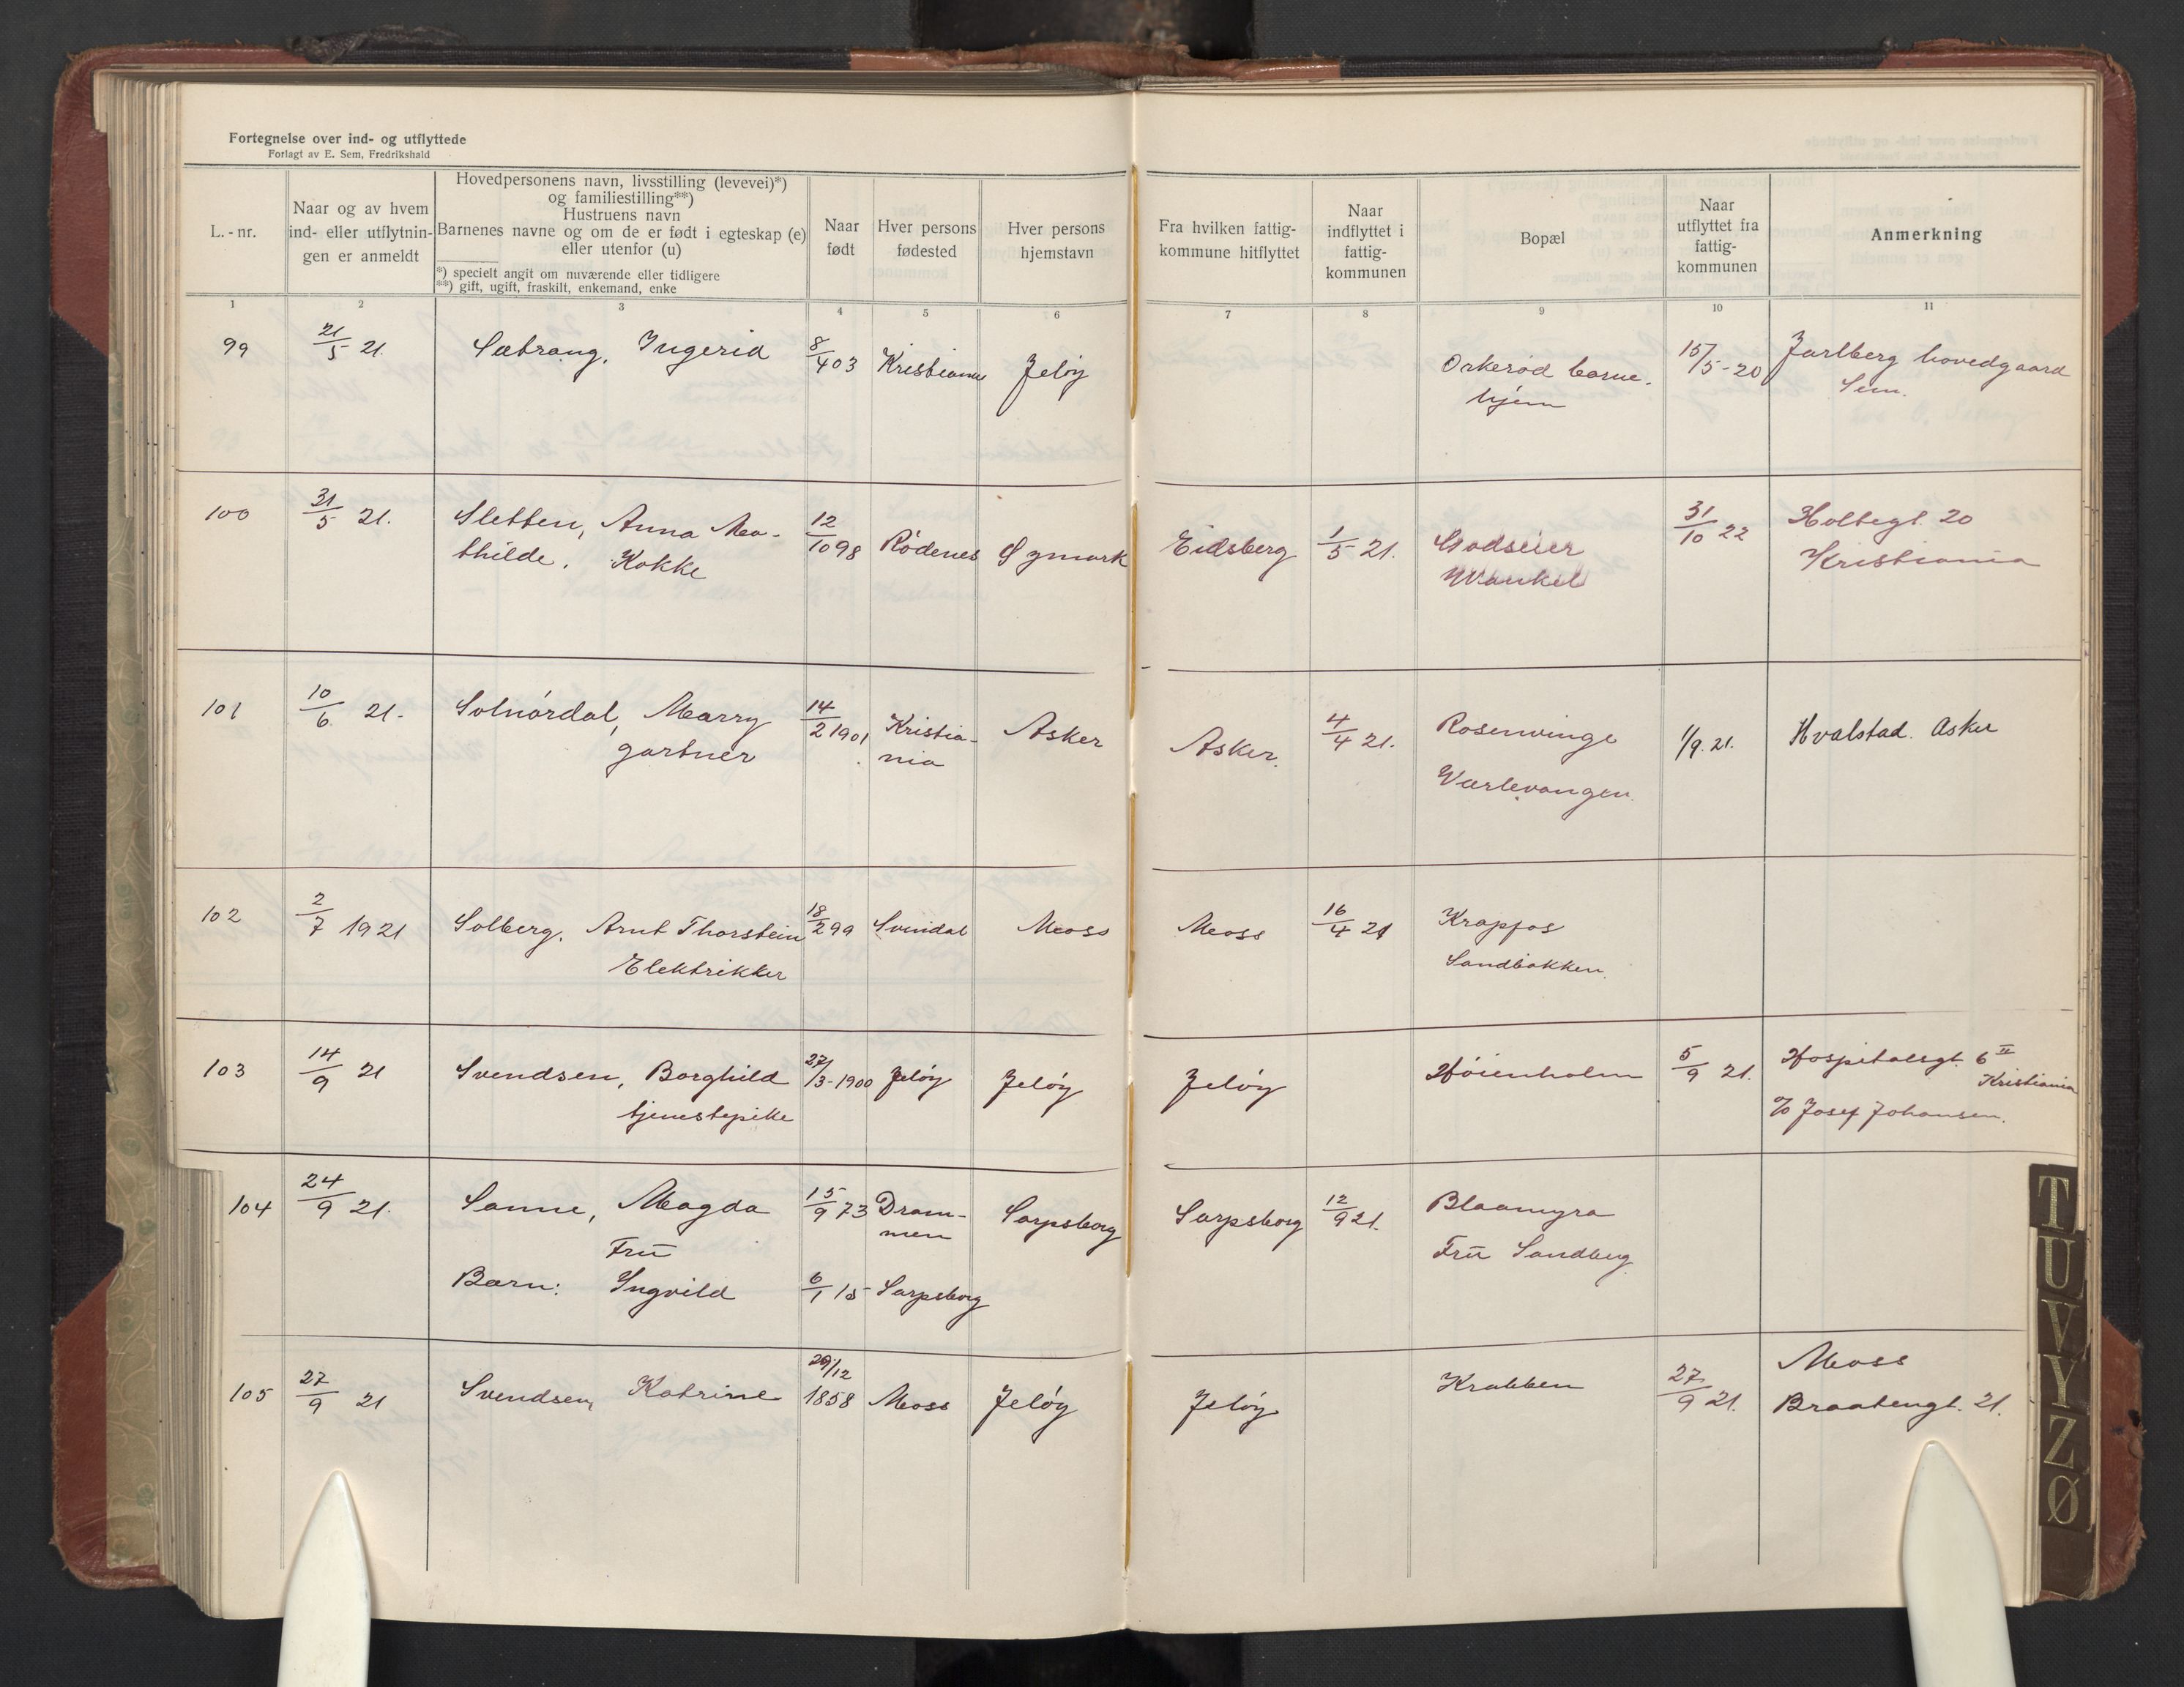 Fortegnelse over ind- og utflyttede
Forlagt av E. Sem, Fredrikshald
L.-nr.
Naar og av hvem
ind- eller utflytnin-
gen er anmeldt
Hovedpersonens navn, livsstilling (levevei)*)
og familiestilling**)
Hustruens navn
Barnenes navne og om de er født i egteskap (e)
eller utenfor (u)
*) specielt angit om nuværende eller tidligere
**) gift, ugift, fraskilt, enkemand, enke
Naar
født
Hver persons
fødested
Hver persons
hjemstavn
Fra hvilken fattig-
kommune hitflyttet
Naar
indflyttet i
fattig-
kommunen
Bopæl
Naar
utflyttet fra
fattig-
kommunen
Anmerkning
1 2 3 4 5 6 7 8 9 10 11
99 21/5 21. Sætrang, Ingerid 8/4 03 Kristiania Jeløy Orkerød barne- 15/5-20 Jarlberg hovedgaard
hjem Sem.
100 31/5 21. Sletten, Anna Ma- 12/10 98 Rødenes Øymark Eidsberg 1/5 21. Godseier 31/10 22 Holtegt. 20
thilde. Kokke Wankel Kristiania
101 10/6 21- Solnørdal, Marry 14/2 1901 Kristia- Asker Asker. 4/4 21. Rosenvinge 1/9. 21. Hvalstad. Asker
gartner nia Værlevangen.
102 2/7 1921 Solberg. Arnt Thorstein 18/2 99 Svindal Moss Moss 16/4 21 Krapfos
Elektrikker Sandbakken.
103 14/9 21 Svendsen, Borghild 27/3-1900 Jeløy Jeløy Jeløy Høienholm 5/9 21. Hospitalsgt. 6 II
Kristiania
tjenestepike c/o Josef Johansen.
104 24/9 21. Sanne, Magda 15/9 73 Dram- Sarpsborg Sarpsborg 12/9 21. Blaamyra
men
Frū Frū Sandberg
Barn: Ingvild 6/1 15 Sarpsborg
105 27/9 21 Svendsen, Katrine 29/12 Moss Jeløy Jeløy Krabben 27/9 21. Moss
1858 Braatengt. 21.
T
U
V
Y
Z
Ø